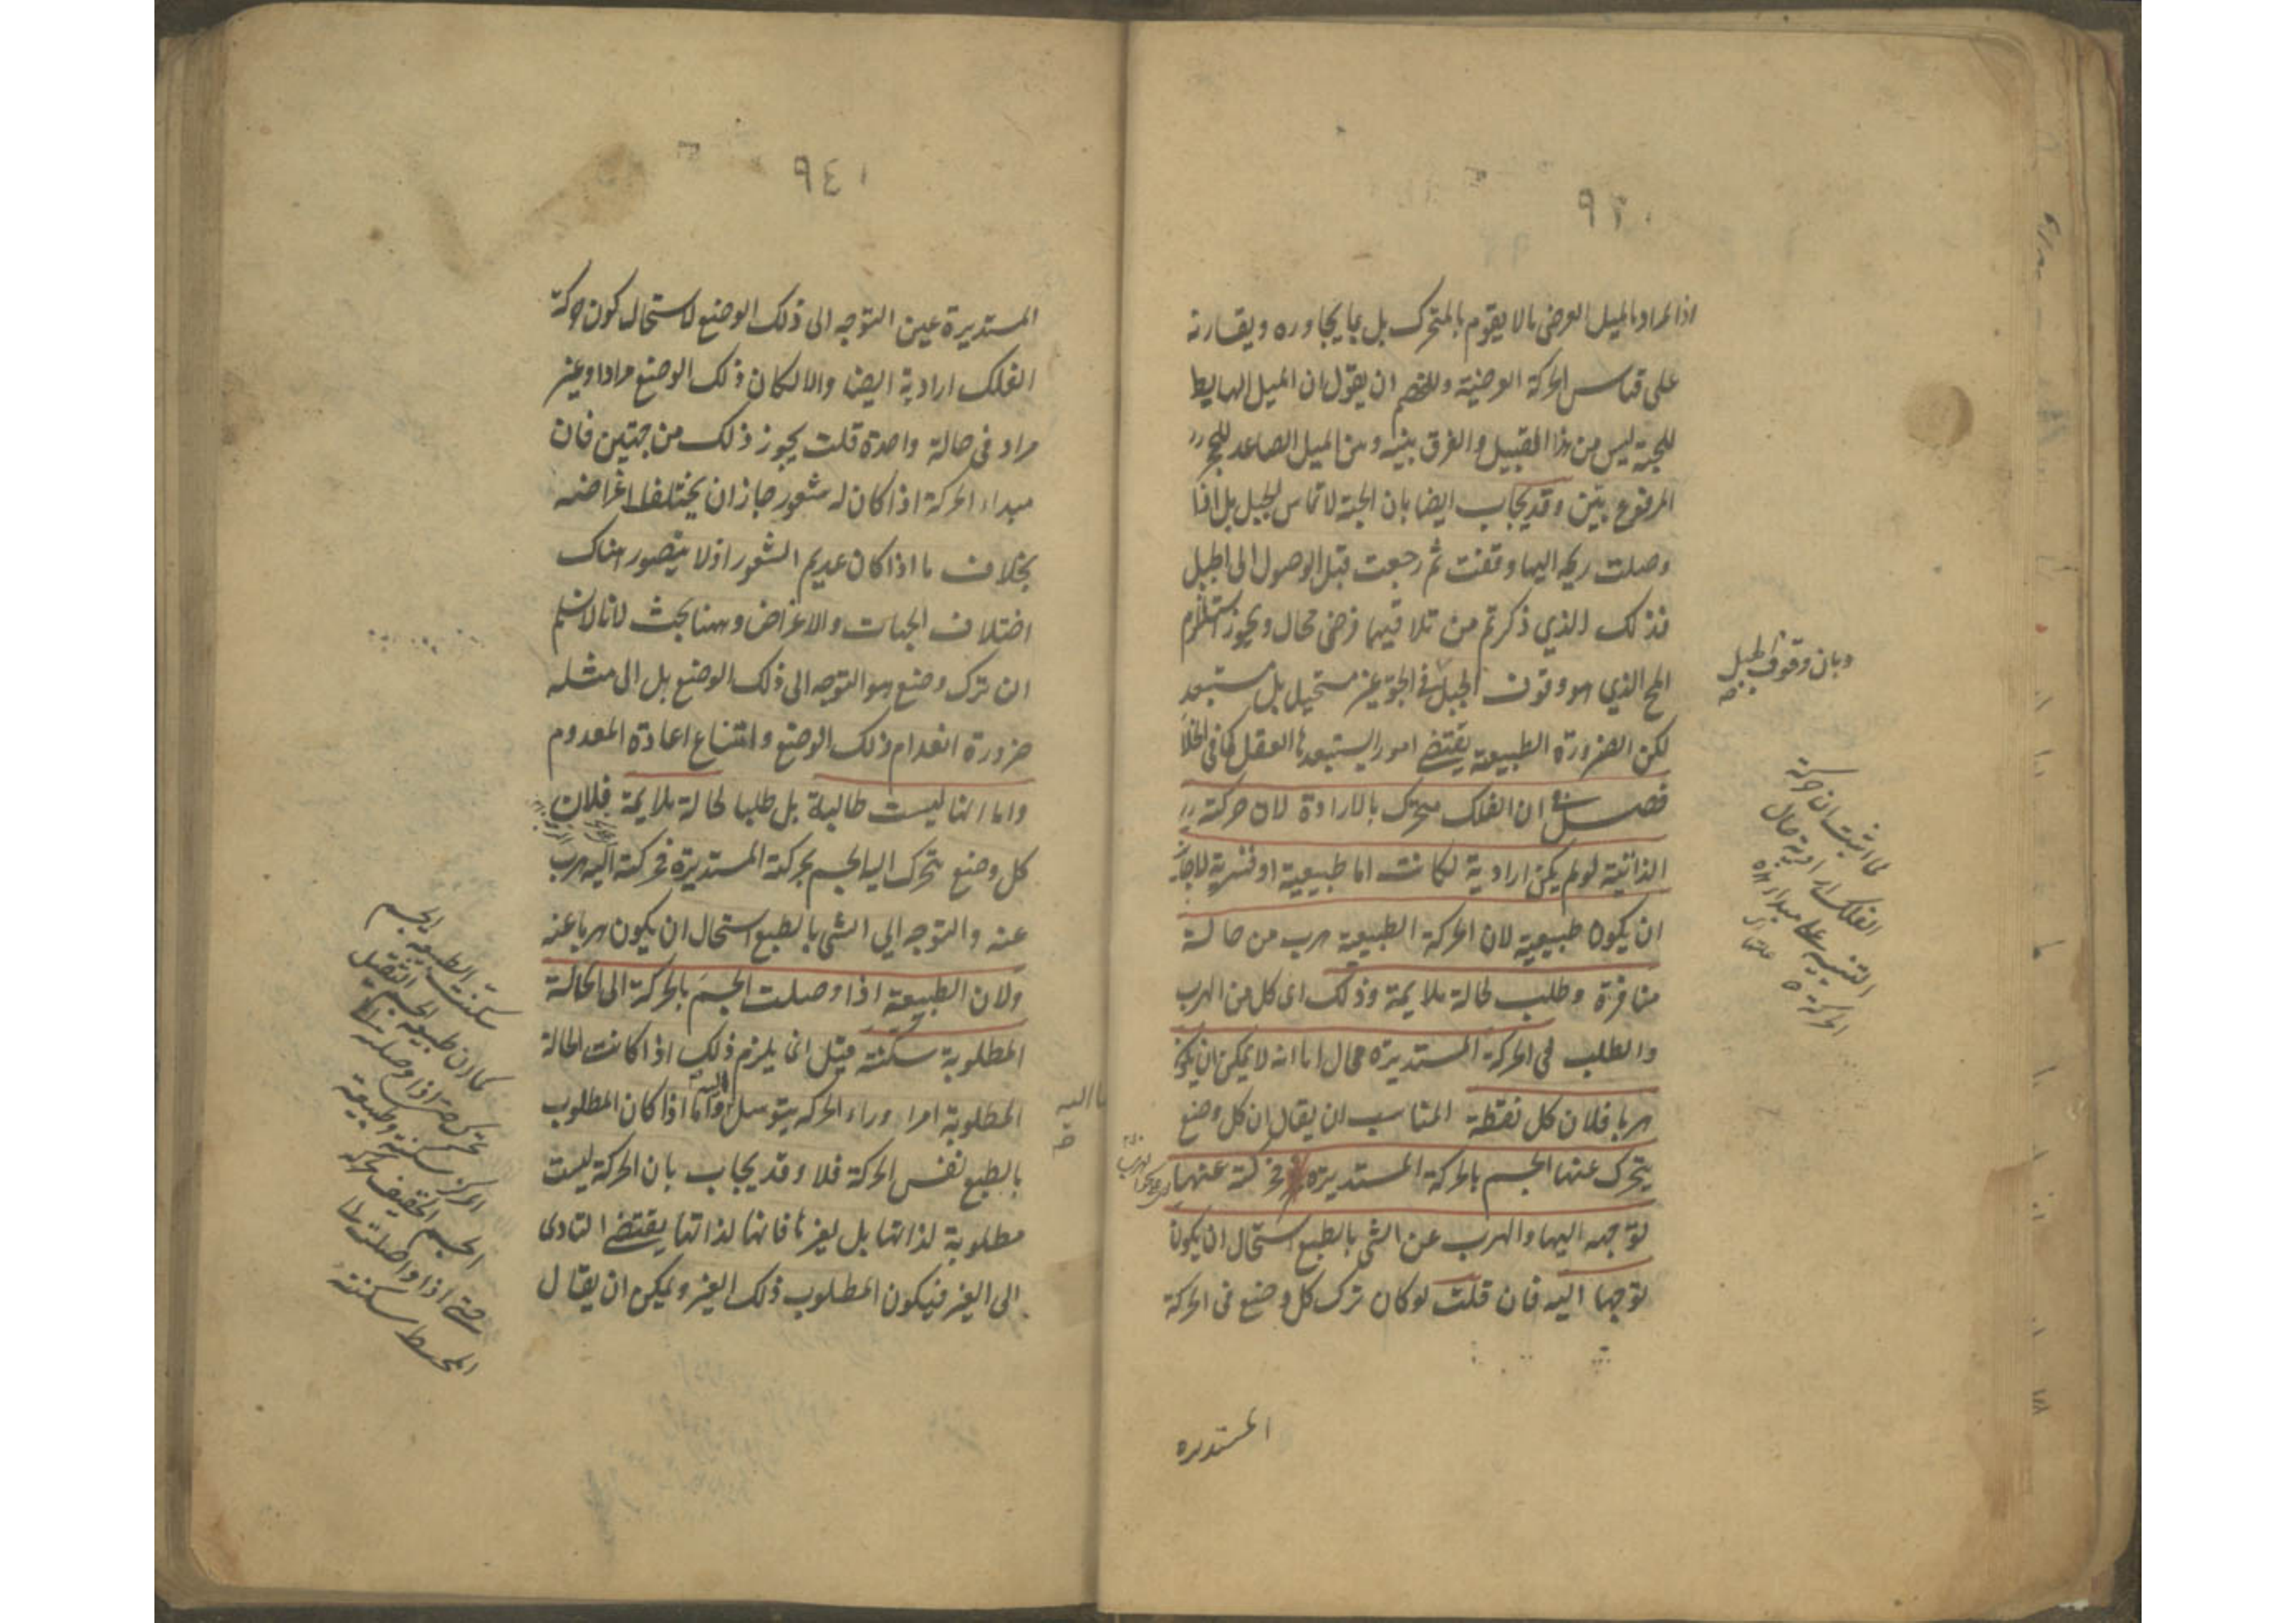 ٩٢٠
اذ المراد بالميل العرضى ما لا يقوم بالمتحرك بل بما يجاوره ويقارنه
على قياس الحركة العرضية وللخصم ان يقول ان الميل الهابط
للحبة ليس من هذا القبيل والفرق بينه وبين الميل الصاعد للحجر
المرفوع بيّن وقد يجاب ايضا بان الحبة لا تماس الجبل بل اذا
وصلت ريحه اليها وقفت ثم رجعت قبل الوصول الى الجبل
فذلك الذي ذكرتم من تلاقيهما فرض محال ويجوز استلزام
المح الذي هو وقوف الجبل فى الجو غير مستحيل بل مستبعد
لكن الضرورة الطبيعية يقتضى امورا يستبعدها العقل كما فى الخلأ
فصل فى ان الفلك متحرك بالارادة لان حركته
الذاتية لو لم يكن ارادية لكانت اما طبيعية او قسرية لا جائز
ان يكون طبيعية لان الحركة الطبيعية هرب من حالة
منافرة وطلب لحالة ملايمة وذلك اى كل من الهرب
والطلب فى الحركة المستديرة محال اما انه لا يمكن ان يكون
هربا فلان كل نقطة المناسب ان يقال ان كل وضع
يتحرك عنها الجسم بالحركة المستديرة فحركته عنها
توجه اليها والهرب عن الشى بالطبع استحال ان يكون
توجها اليه فان قلت لو كان ترك كل وضع فى الحركة
المستديره
وبان وقوف الجبل
لما اثبت ان حركة
الفلك ارادية حال
التنبيه على مبداء هذه
الحركة
٩٤١
المستديرة عين التوجه الى ذلك الوضع لاستحال كون حركة
الفلك ارادية ايضا والا لكان ذلك الوضع مرادا وغير
مراد فى حالة واحدة قلت يجوز ذلك من جهتين فان
مبداء الحركة اذا كان له شعور جاز ان يختلف اغراضه
بخلاف ما اذا كان عديم الشعور اذ لا يتصور هناك
اختلاف الجهات والاغراض وههنا بحث لانا لا نسلم
ان ترك وضع هو التوجه الى ذلك الوضع بل الى مثله
ضرورة انعدام ذلك الوضع وامتناع اعادة المعدوم
واما انها ليست طالبة بل طلبا لحالة ملايمة فلان
كل وضع يتحرك اليها الجسم بحركته المستديرة فحركته اليه هرب
عنه والتوجه الي الشى بالطبع استحال ان يكون هربا عنه
ولان الطبيعة اذا وصلت الجسم بالحركة الى الحالة
المطلوبة سكنته قيل انما يلزم ذلك اذا كانت الحالة
المطلوبة امرا وراء الحركة يتوسل واما اذا كان المطلوب
بالطبع نفس الحركة فلا وقد يجاب بان الحركة ليست
مطلوبة لذاتها بل لغيرها فانها لذاتها يقتضى التادى
الى الغير فيكون المطلوب ذلك الغير ويمكن ان يقال
بها اليه
سكنت الطبيعة الجسم
كما ان طبيعة الجسم الثقيل
المركز سكنته وطبيعة
الجسم الخفيف
حتى اذا واصلت
المحيط سكنته